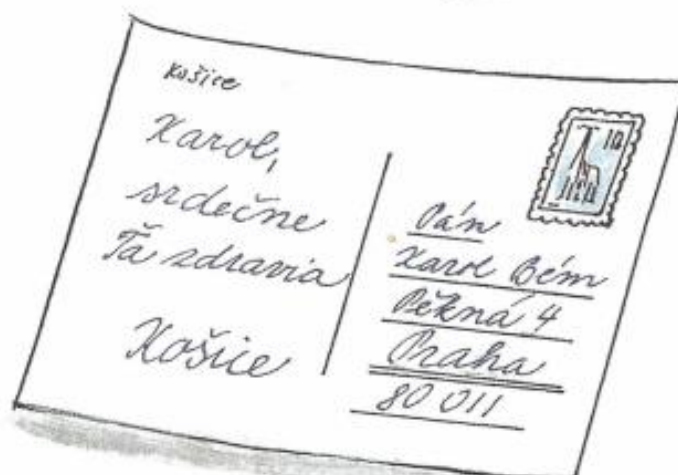 Košice
Karol,
srdečne
Ťa zdravia
Košice
10
Pán
Karol Bém
Pěkná 4
Praha
80 011